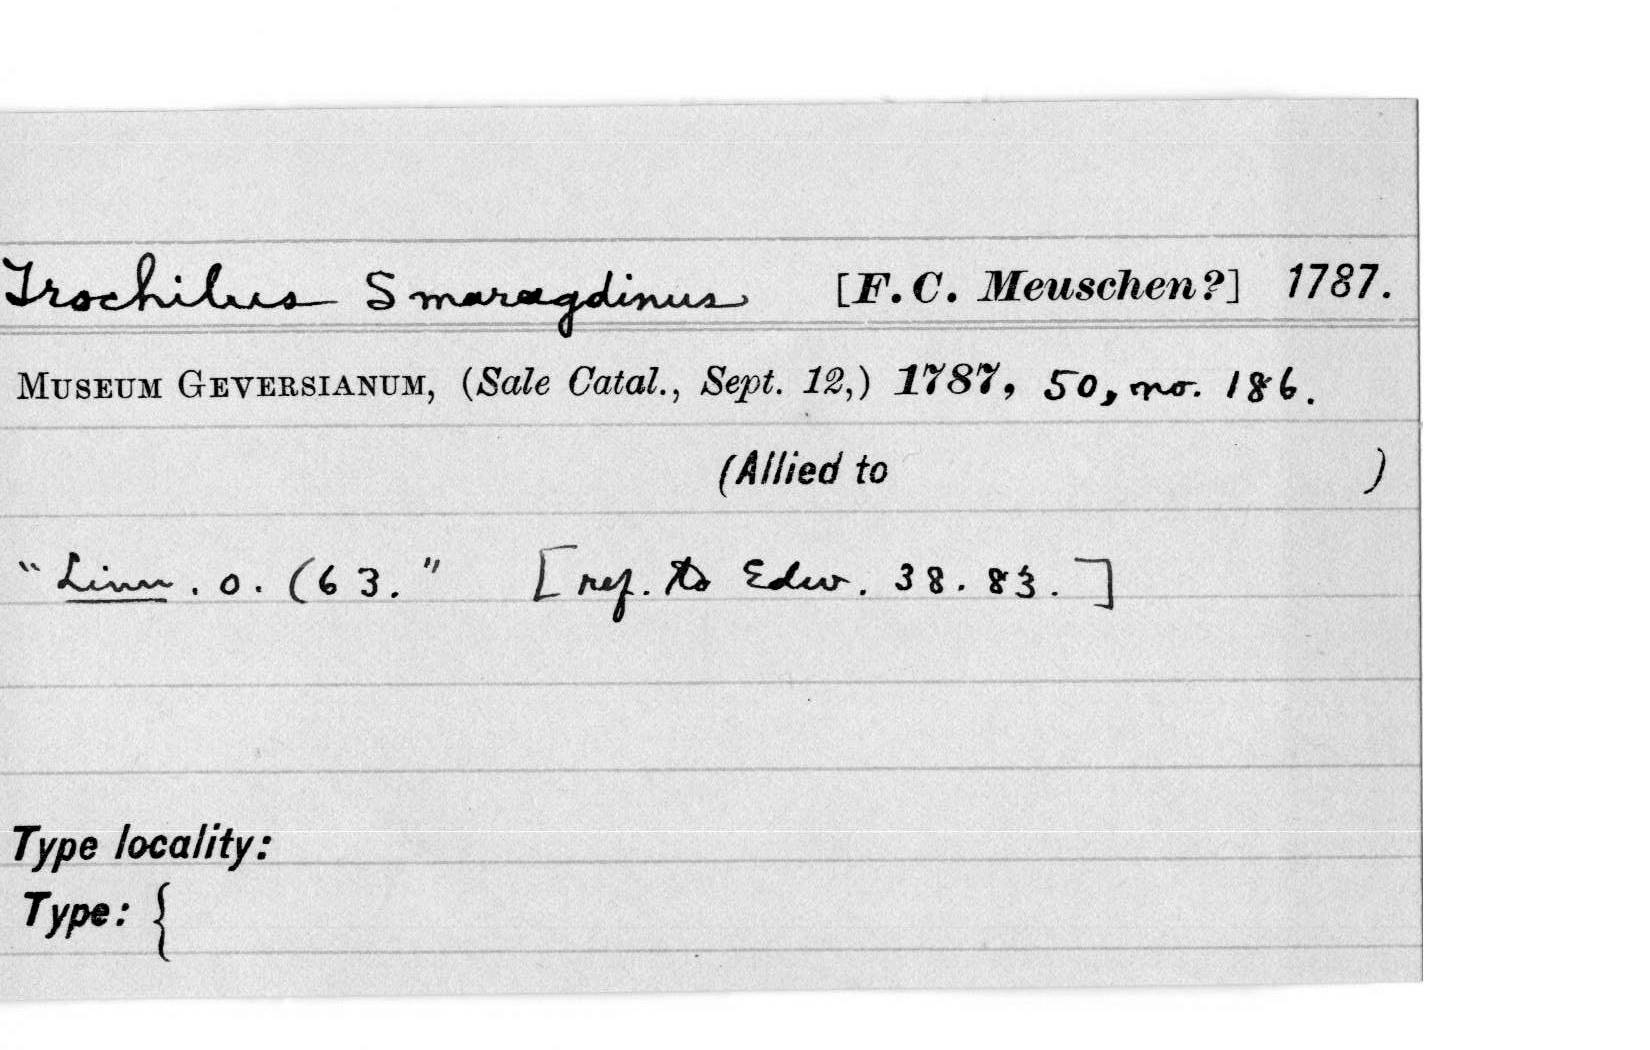 Trochilus Smaragdinus [F. C. Meuschen?] 1787.
MUSEUM GEVERSIANUM, (Sale Catal., Sept. 12,) 1787, 50, no. 186.
(Allied to )
"Linn. o. (63." [ref. to Edw. 38. 83.]
Type locality:
Type: {